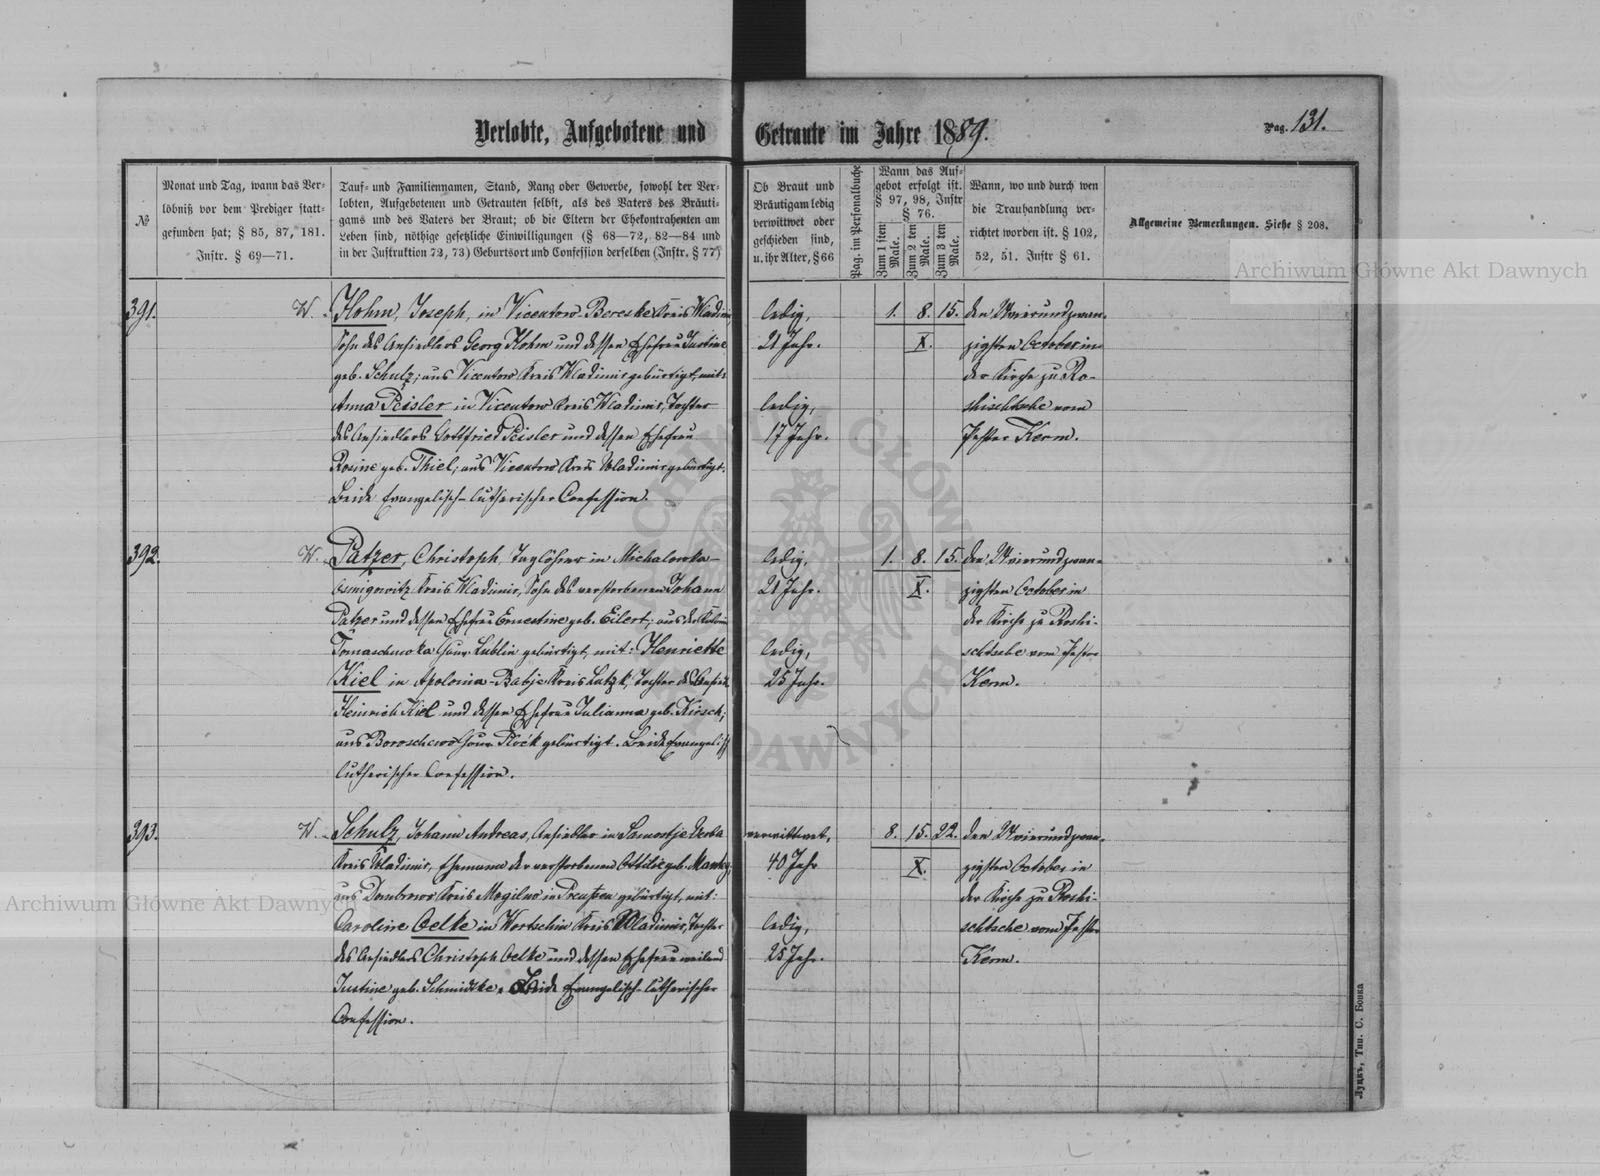 Verlobte, Aufgebotene und Getraute im Jahre 1889.
Pag. 131.
№
Monat und Tag, wann das Ver-
löbniß vor dem Prediger statt-
gefunden hat; § 85, 87, 181.
Instr. § 69—71.
Tauf- und Familiennamen, Stand, Rang oder Gewerbe, sowohl der Ver-
lobten, Aufgebotenen und Getrauten selbst, als des Vaters des Bräuti-
gams und des Vaters der Braut; ob die Eltern der Ehekontrahenten am
Leben sind, nöthige gesetzliche Einwilligungen (§ 68—72, 82—84 und
in der Instruktion 72, 73) Geburtsort und Confession derselben (Instr. § 77)
Ob Braut und
Bräutigam ledig
verwittwet oder
geschieden sind,
u. ihr Alter, § 66
Pag. im Personalbuche
Wann das Auf-
gebot erfolgt ist.
§ 97, 98, Instr
§ 76.
Zum 1 sten Male.
Zum 2 ten Male.
Zum 3 ten Male.
Wann, wo und durch wen
die Trauhandlung ver-
richtet worden ist. § 102,
52, 51. Instr § 61.
Allgemeine Bemerkungen. Siehe § 208.
Archiwum Główne Akt Dawnych
391.
W.
Hohm, Joseph, in Vicentow-Bereske Kreis Wladimir,
Sohn des Ansiedlers Georg Hohm und dessen Ehefrau Justine
geb. Schulz; aus Vicentow Kreis Wladimir gebürtigt, mit:
Anna Peisler in Vicentow Kreis Wladimir, Tochter
des Ansiedlers Gottfried Peisler und dessen Ehefrau
Rosine geb. Thiel; aus Vicentow Kreis Wladimir gebürtigt.
Beide Evangelisch-lutherischer Confession.
ledig,
21 Jahr.
ledig,
17 Jahr.
1. 8. 15.
X.
den 24 vierundzwan-
zigsten October in
der Kirche zu Ro-
shischtsche vom
Pastor Kerm.
392.
W.
Patzer, Christoph, Taglöhner in Michalowka-
Kreis Wladimir, Sohn des verstorbenen Johann
Patzer und dessen Ehefrau Ernestine geb. Eilert; aus der Kolonie
Tomaschewka Gouv. Lublin gebürtigt, mit: Henriette
Kiel in Apolonia-Babje Kreis Lutzk, Tochter des Ansiedl.
Heinrich Kiel und dessen Ehefrau Julianna geb. Kirsch;
aus Boroschewo Gouv. Plock gebürtigt. Beide Evangelisch
lutherischer Confession.
ledig,
21 Jahr.
ledig,
25 Jahr.
1. 8. 15.
X.
den 24 vierundzwan-
zigsten October in
der Kirche zu Roshi-
schtsche vom Pastor
Kerm.
393.
W.
Schulz, Johann Andreas, Ansiedler in Samostje Werba
Kreis Wladimir, Ehemann der verstorbenen Ottilie geb.
aus Dombrowo Kreis Mogilno in Preußen gebürtigt, mit:
Caroline Oelke in Wortschin Kreis Wladimir, Tochter
des Ansiedlers Christoph Oelke und dessen Ehefrau weiland
Justine geb. Schmidtke. Beide Evangelisch-lutherischer
Confession.
verwittwet,
40 Jahr
ledig,
25 Jahr.
8. 15. 22.
X.
den 24 vierundzwan-
zigsten October in
der Kirche zu Roshi-
schtsche vom Pastor
Kerm.
Archiwum Główne Akt Dawnych
Луцкъ, Тип. С. Бонка